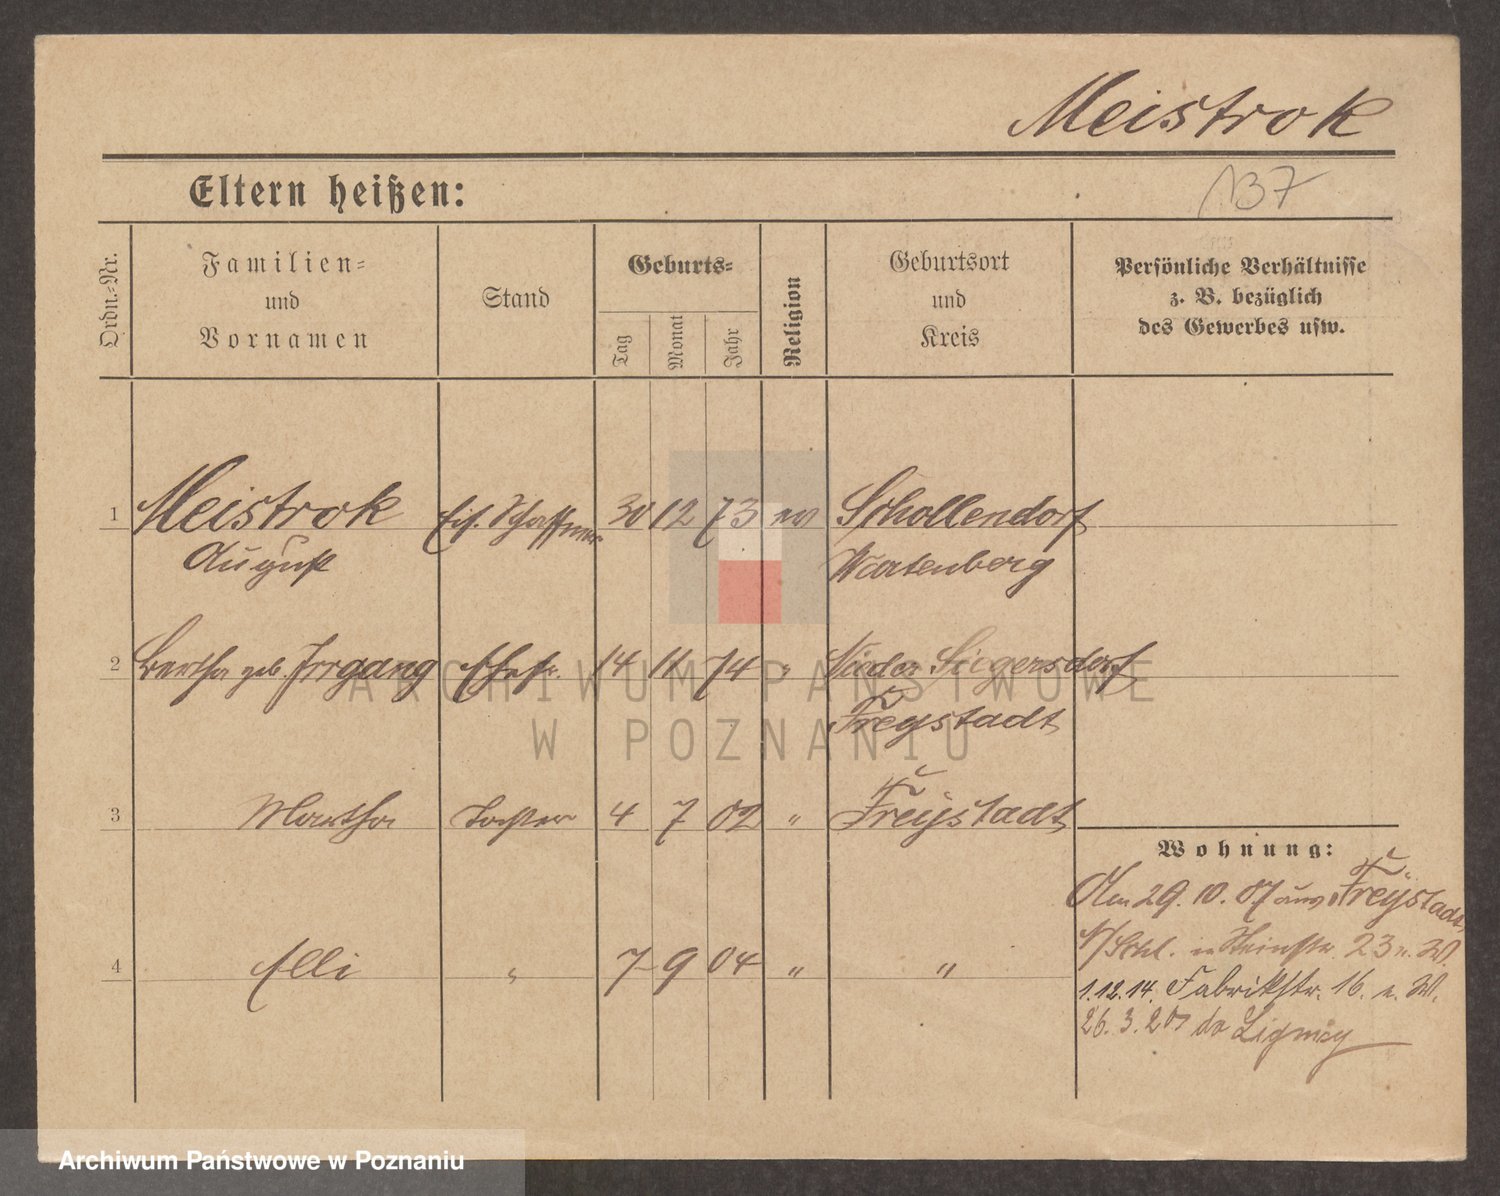 Meistrok
137
Eltern heißen:
Ordn.-Nr.
Familien-
und
Vornamen
Stand
Geburts-
Tag
Monat
Jahr
Religion
Geburtsort
und
Kreis
Persönliche Verhältnisse
z. B. bezüglich
des Gewerbes usw.
1 Meistrok Eis. Schaffner 30 12 73 ev Schollendorf
August Wartenberg
2 Bertha geb. Irrgang Ehefr. 14 11 74 " Nieder Siegersdorf
Freystadt
3 Martha Tochter 4 7 02 " Freystadt
Wohnung:
Am 29. 10. 07 aus Freystadt
N/Schl. 23 n. W.
4 Elli " 7 9 04 " "
1.12.14. Fabrikstr. 16. n. W.
26. 3. 20
ARCHIWUM PAŃSTWOWE
W POZNANIU
Archiwum Państwowe w Poznaniu